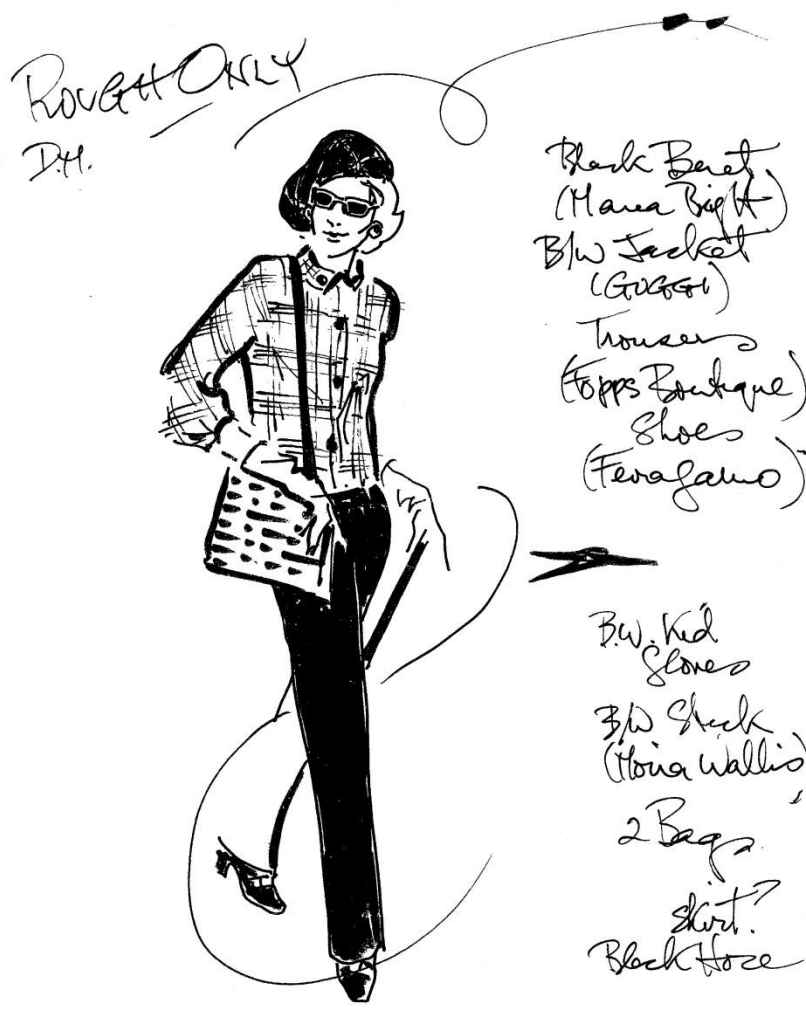 ROUGH ONLY
D.H.
Black Beret
(Maria Bight)
B/W Jacket
(GUCCI)
Trousers
(Fopps Boutique)
Shoes
(Feragamo)
B.W. Kid
Gloves
B/W
(Moira Wallis)
2 Bags
Skirt?
Black Hoze